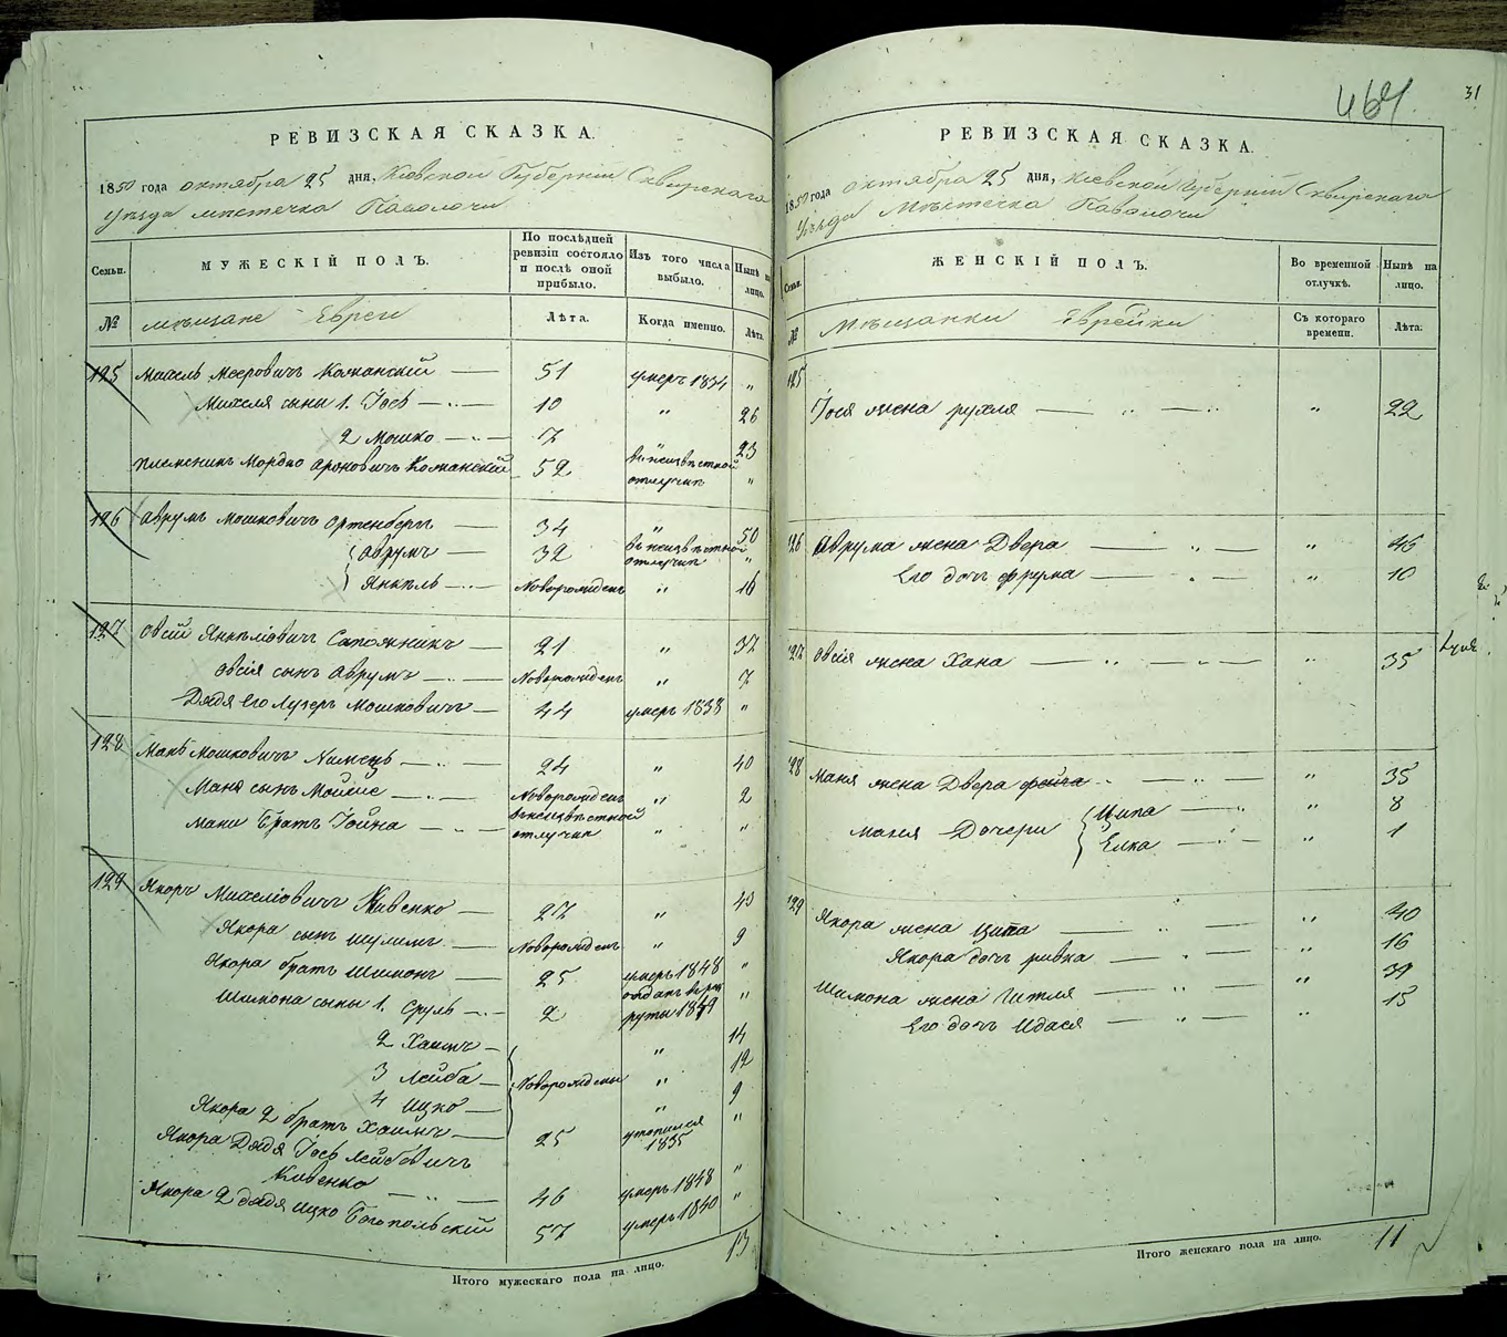 РЕВИЗСКАЯ СКАЗКА.
1850 года октября 25 дня, Кіевской Губерніи Сквирскаго
Уезда местечка Паволочи
Семьи. МУЖЕСКІЙ ПОЛЪ. По послѣдней ревизіи состояло и послѣ оной прибыло. Изъ того числа выбыло. Нынѣ на лицо.
№ мещане Евреи Лѣта. Когда именно. Лѣта.
125 Михель Мееровичъ Кожанскій 51 умеръ 1834 "
Михеля сыны 1. Іосъ 10 " 26
2 Мошко 7 " 23
племеникъ Мордко Ароновичъ Кожанскій 52 въ неизвѣстной отлучки "
126 Аврумъ Мошковичъ Ортенбергъ 34 " 50
Аврумъ 32 въ неизвѣстной отлучки "
Янкель Новорожденъ " 16
127 Овсій Янкеліовичъ Сапожникъ 21 " 37
Овсія сынъ Аврумъ Новорожденъ " 7
Дядя его Лузеръ Мошковичъ 44 умеръ 1838 "
128 Мань Мошковичъ 24 " 40
Маня сынъ Мойше Новорожденъ " 2
Мани Братъ Іойна въ неизвѣстной отлучки " "
129 Якоръ Михеліовичъ Кивенко 27 " 43
Якора сынъ Шулимъ Новорожденъ " 9
Якора братъ Шимонъ 25 умеръ 1848 "
Шимона сыны 1. Сруль 2 отданъ въ рекруты 1849 "
2 Хаимъ " 14
3 Лейба Новорождены " 12
4 Ицко " 9
Якора 2 братъ Хаимъ 25 утопился 1835 "
Якора Дядя Іосъ Лейбовичъ
Кивенко 46 умеръ 1848 "
Якора 2 дядя Ицко Богопольскій 57 умеръ 1840 "
Итого мужескаго пола на лицо. 13
31
РЕВИЗСКАЯ СКАЗКА.
1850 года октября 25 дня, Кіевской Губерніи Сквирскаго
Уѣзда Мѣстечка Паволочи
Семьи. ЖЕНСКІЙ ПОЛЪ. Во временной отлучкѣ. Нынѣ на лицо.
№ Мѣщанки Еврейки Съ котораго времени. Лѣта.
125
Іося жена рухля " 22
126 Аврума жена Двера " 45
Его дочь фрума " 10
127 Овсія жена Хана " 35
128 Маня жена Двера " 35
Маня Дочери Ципа " 8
Елка " 1
129 Якора жена Ципа " 40
Якора дочь ривка " 16
Шимона жена Гитля " 39
Его дочь Идася " 15
Итого женскаго пола на лицо. 11